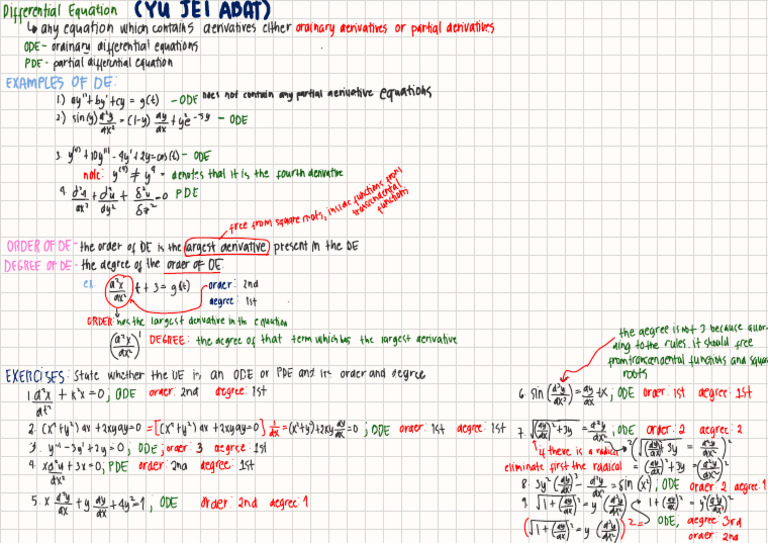 Differential Equation (YU JEI ADAT)
↳ any equation which contains derivatives either ordinary derivatives or partial derivatives
ODE - ordinary differential equations
PDE - partial differential equation
EXAMPLES OF DE:
1.) ay'' + by' + cy = g(t) - ODE does not contain any partial derivative equations
2.) sin(y) d²y/dx² = (1-y) dy/dx + y²e^-5y - ODE
3. y⁽⁴⁾ + 10y''' - 4y' + 2y = cos(t) - ODE
note: y⁽⁴⁾ ≠ y⁴ - denotes that it is the fourth derivative
4. d²u/dx² + d²u/dy² + δ²u/δz² = 0 PDE
free from square roots, inside functions from transcendental functions
ORDER OF DE - the order of DE is the largest derivative present in the DE
DEGREE OF DE - the degree of the order of DE
ex. d²x/dx² t + 3 = g(t) order: 2nd
degree: 1st
ORDER: has the largest derivative in the equation
(d²x/dx²)¹ DEGREE: the degree of that term which has the largest derivative
EXERCISES: State whether the DE is an ODE or PDE and its order and degree
1. d²x/dt² + k²x = 0; ODE order: 2nd degree: 1st
2. (x²+y²) dx + 2xydy = 0 = [(x²+y²) dx + 2xydy = 0] 1/dx = (x²+y²) + 2xy dy/dx = 0; ODE order: 1st degree: 1st
3. y''' - 3y' + 2y = 0; ODE; order: 3 degree: 1st
4. xd²u/dx² + 3x = 0; PDE order: 2nd degree: 1st
5. x d²y/dx + y dy/dx + 4y² = 1, ODE order: 2nd degree: 1
the degree is not 3 because according to the rules. it should free from transcendental functions and square roots
6. sin (d²y/dx) = dy/dx + x; ODE order: 1st degree: 1st
7. √(dy/dx)² + 3y = d²y/dx², ODE order: 2 degree: 2
if there is a radical eliminate first the radical
²(√(dy/dx)² + 3y = d²y/dx²)²
= (dy/dx)² + 3y = (d²y/dx²)²
8. 3y² (dy/dx)³ - d²y/dx² = sin (x²); ODE order: 2 degree: 1
9. √1 + (dy/dx)² = y (d²y/dx²) → 1 + (dy/dx)² = y² (d²y/dx²)²
(√1 + (dy/dx)² = y (d²y/dx²))² = ODE; degree: 3rd
order: 2nd